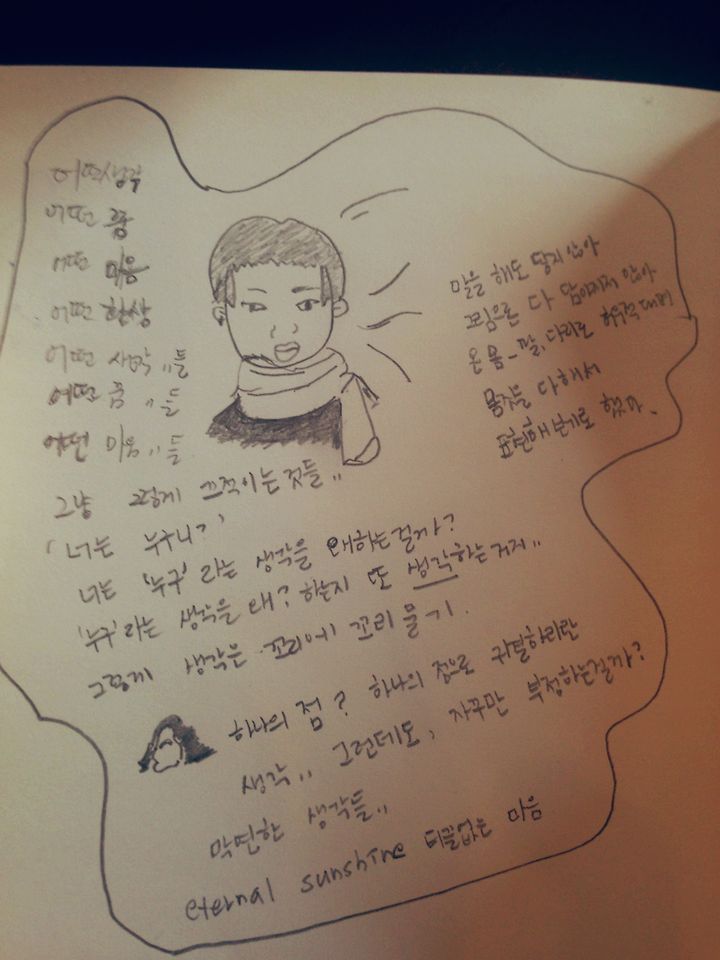 어떤생각
어떤 꿈
어떤 마음
어떤 환상
어떤 생각,,들
어떤 꿈 ,,들
어떤 마음,,들
말을 해도 닿지 않아
그림으론 다 담아지지 않아
온 몸-팔, 다리로 허우적대며
몸짓을 다해서
표현해 보기로 했다.
그냥 그렇게 끄적이는 것들,,
'너는 누구니?'
너는 '누구' 라는 생각을 왜하는걸까?
'누구'라는 생각을 왜? 하는지 또 생각하는거지,,
그렇게 생각은 꼬리에 꼬리 물기.
하나의 점? 하나의 점으로 귀결하리란
생각,, 그런데도, 자꾸만 부정하는걸까?
막연한 생각들,,
eternal sunshine 티끌없는 마음